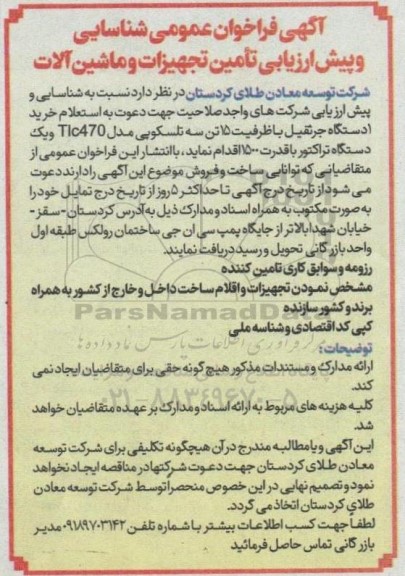 آگهی فراخوان عمومی شناسایی
و پیش ارزیابی تأمین تجهیزات و ماشین آلات
شرکت توسعه معادن طلای کردستان در نظر دارد نسبت به شناسایی و
پیش ارزیابی شرکت های واجد صلاحیت جهت دعوت به استعلام خرید
۱دستگاه جرثقیل با ظرفیت ۱۵ تن سه تلسکوپی مدل Tlc470 ویک
دستگاه تراکتور با قدرت ۱۵۰۰اقدام نماید ، با انتشار این فراخوان عمومی از
متقاضیانی که توانایی ساخت و فروش موضوع این آگهی را دارند دعوت
می شود از تاریخ درج آگهی تا حداکثر ۵ روز از تاریخ درج تمایل خود را
به صورت مکتوب به همراه اسناد و مدارک ذیل به آدرس کردستان - سقز -
خیابان شهدا بالاتر از جایگاه پمپ سی ان جی ساختمان رولکس طبقه اول
واحد بازرگانی تحویل و رسید دریافت نمایند.
رزومه و سوابق کاری تامین کننده
مشخص نمودن تجهیزات و اقلام ساخت داخل و خارج از کشور به همراه
برند و کشور سازنده
کپی کد اقتصادی و شناسه ملی
توضیحات :
ارائه مدارک و مستندات مذکور هیچ گونه حقی برای متقاضیان ایجاد نمی
کند.
کلیه هزینه های مربوط به ارائه اسناد و مدارک بر عهده متقاضیان خواهد
شد.
این آگهی و یا مطالبه مندرج در آن هیچگونه تکلیفی برای شرکت توسعه
معادن طلای کردستان جهت دعوت شرکتها در مناقصه ایجاد نخواهد
نمود و تصمیم نهایی در این خصوص منحصرا توسط شرکت توسعه معادن
طلای کردستان اتخاذ می گردد.
لطفا جهت کسب اطلاعات بیشتر با شماره تلفن ۰۹۱۸۹۷۰۳۱۴۲ مدیر
بازرگانی تماس حاصل فرمائید
ParsNamadData
۰۲۱-۸۸۳۴۹۶۷۰-۵